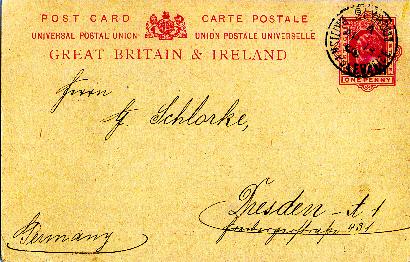 POST CARD CARTE POSTALE
UNIVERSAL POSTAL UNION UNION POSTALE UNIVERSELLE
GREAT BRITAIN & IRELAND
ONE PENNY
Herrn
G Schlorke,
Dresden - A 1
Germany